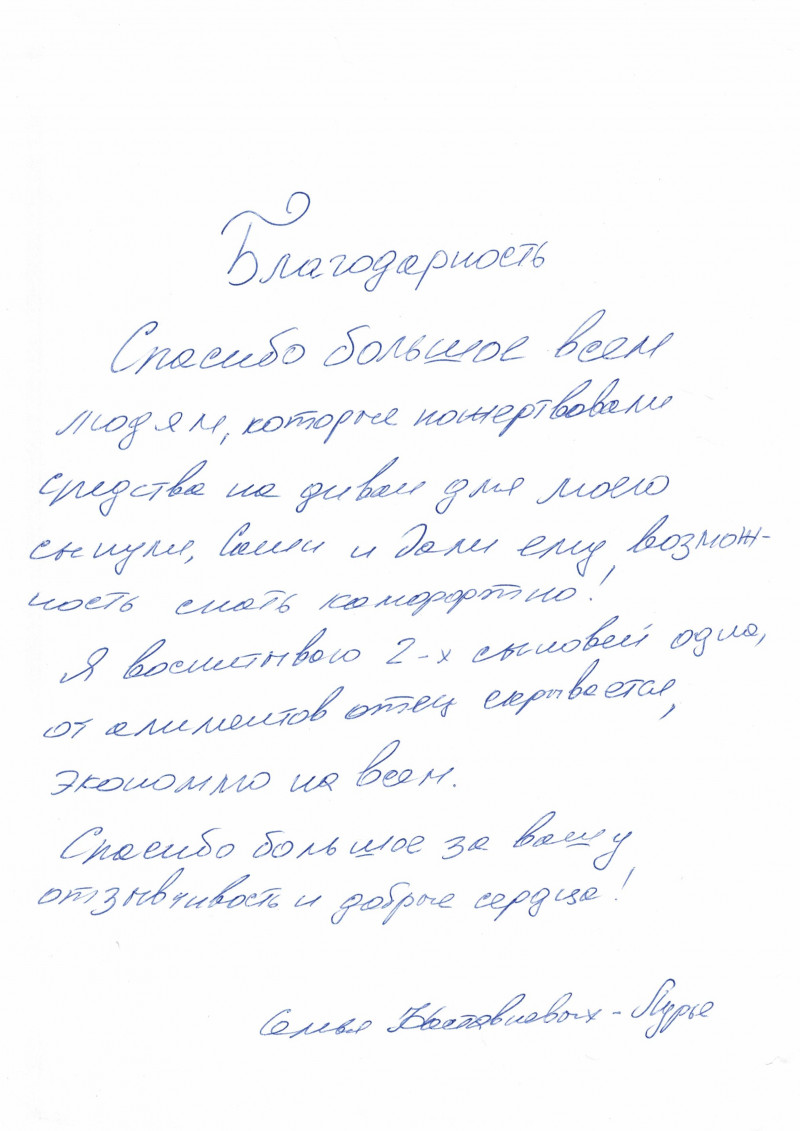 Благодарность
Спасибо большое всем
людям, которые пожертвовали
средства на диван для моего
сынули, Саши и дали ему возмож-
ность спать комфортно!
Я воспитываю 2-х сыновей одна,
от алиментов отец скрывается,
экономлю на всем.
Спасибо большое за вашу
отзывчивость и добрые сердца!
Семья - Лурье